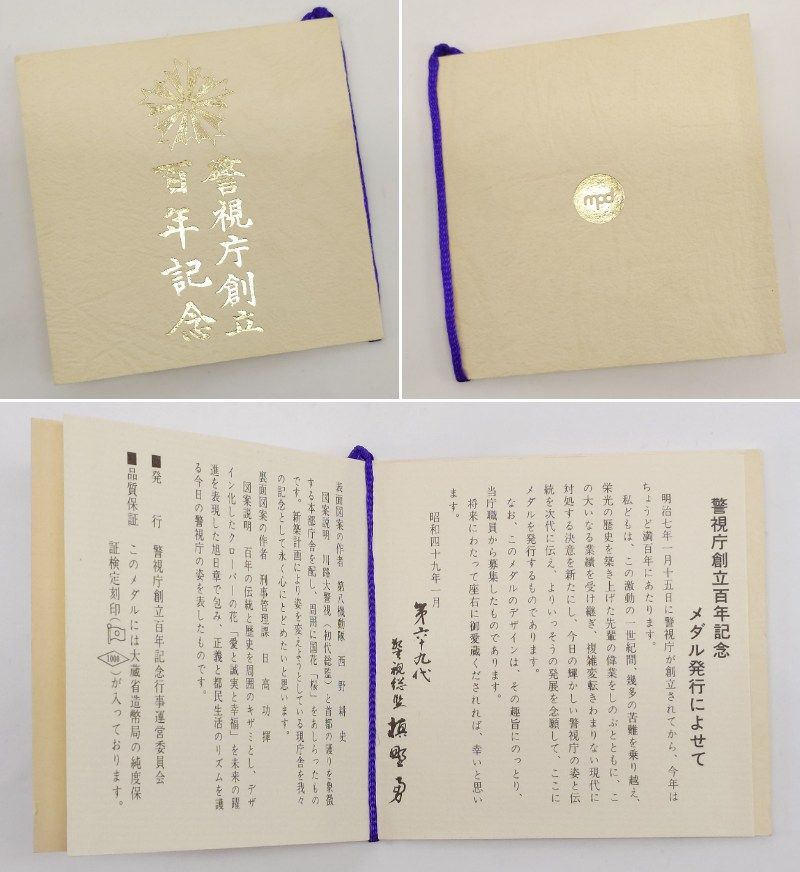 警視庁創立
百年記念
mpd
警視庁創立百年記念
メダル発行によせて
明治七年一月十五日に警視庁が創立されてから、今年は
ちょうど満百年にあたります。
私どもは、この激動の一世紀間、幾多の苦難を乗り越え、
栄光の歴史を築き上げた先輩の偉業をしのぶとともに、こ
の大いなる業績を受け継ぎ、複雑変転きわまりない現代に
対処する決意を新たにし、今日の輝かしい警視庁の姿と伝
統を次代に伝え、よりいっそうの発展を念願して、ここに
メダルを発行するものであります。
なお、このメダルのデザインは、その趣旨にのっとり、
当庁職員から募集したものであります。
将来にわたって座右に御愛蔵くだされれば、幸いと思い
ます。
昭和四十九年一月
第六十九代
警視総監 槇野勇
表面図案の作者 第八機動隊 西野耕史
図案説明 川路大警視(初代総監)と首都の護りを象徴
する本部庁舎を配し、周囲に国花「桜」をあしらったもの
です。新築計画により姿を変えようとしている現庁舎を我々
の記念として永く心にとどめたいと思います。
裏面図案の作者 刑事管理課 日高功揮
図案説明 百年の伝統と歴史を周囲のキザミとし、デザ
イン化したクローバーの花「愛と誠実と幸福」を未来の躍
進を表現した旭日章で包み、正義と都民生活のリズムを護
る今日の警視庁の姿を表したものです。
■発行 警視庁創立百年記念行事運営委員会
■品質保証 このメダルには大蔵省造幣局の純度保
証検定刻印(1000)が入っております。